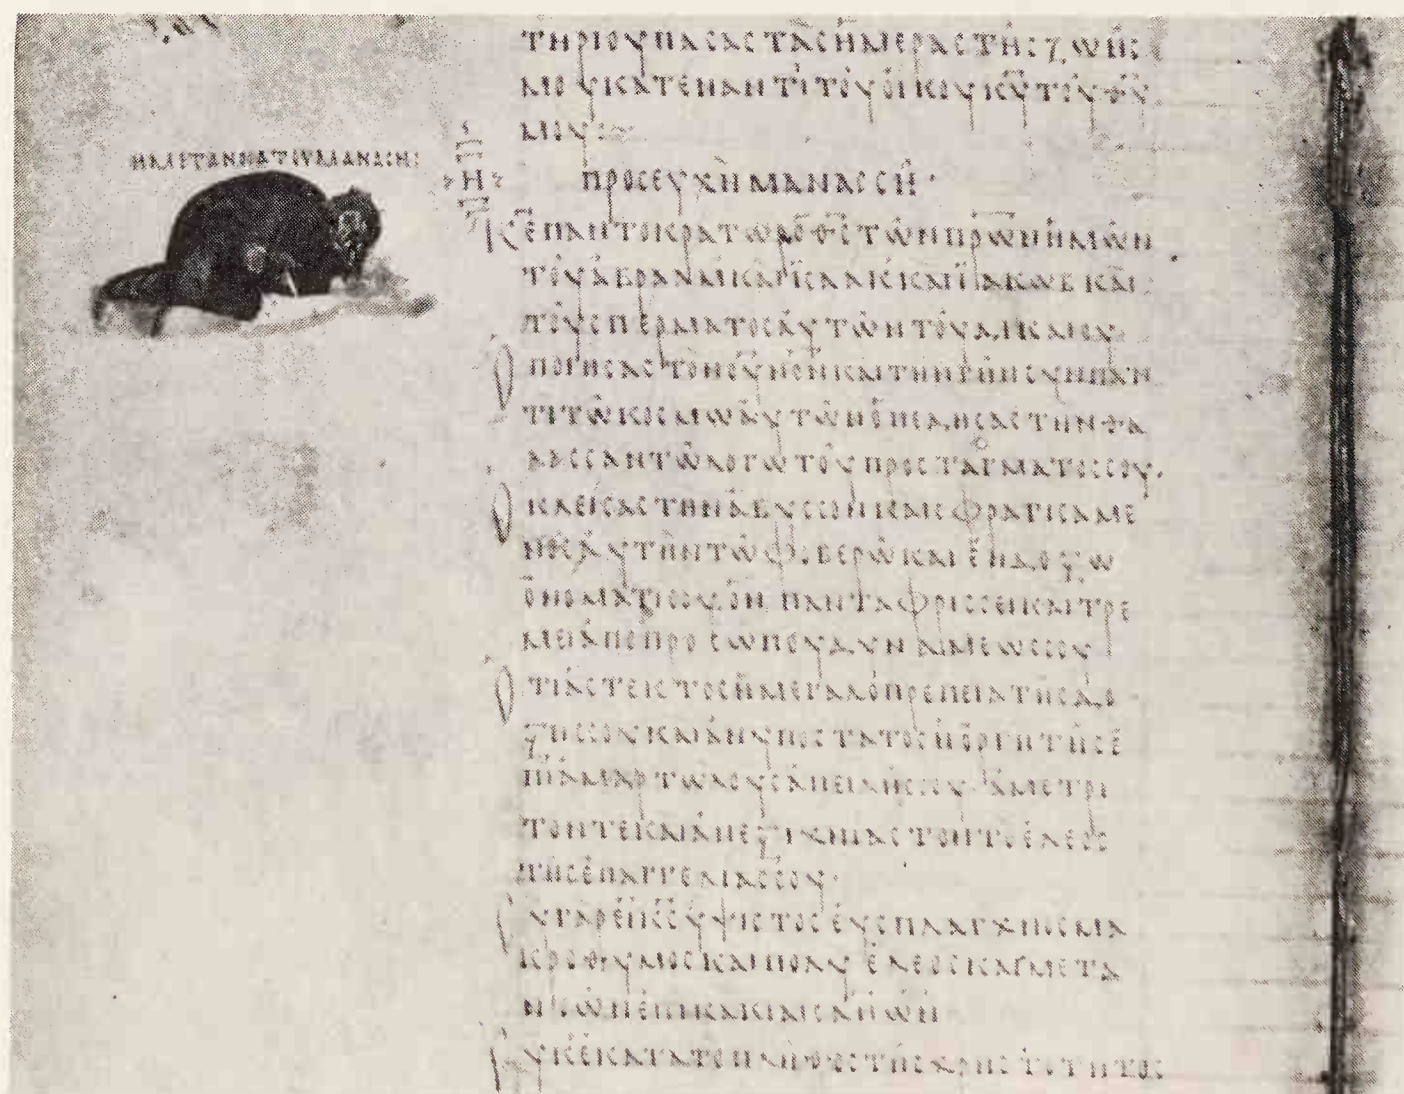 ΤΗΡΙΟΥ ΠΑΣΑΣ ΤΑΣ ΗΜΕΡΑΣ ΤΗΣ ΖΩΗΣ
ΜΟΥ ΚΑΤΕΝΑΝΤΙ ΤΟΥ ΟΙΚΟΥ ΚΥ ΤΟΥ ΘΥ
ΜΟΥ
Η ΜΕΤΑΝΟΙΑ ΤΟΥ ΜΑΝΑΣΗ
Η
ΠΡΟΣΕΥΧΗ ΜΑΝΑΣΣΗ·
ΚΕ ΠΑΝΤΟΚΡΑΤΩΡ Ο ΘΣ ΤΩΝ ΠΡΩΝ ΗΜΩΝ
ΤΟΥ ΑΒΡΑΑΜ ΚΑΙ ΙΣΑΑΚ ΚΑΙ ΙΑΚΩΒ ΚΑΙ
ΤΟΥ ΣΠΕΡΜΑΤΟΣ ΑΥΤΩΝ ΤΟΥ ΔΙΚΑΙΟΥ
Ο ΠΟΙΗΣΑΣ ΤΟΝ ΟΥΝΟΝ ΚΑΙ ΤΗΝ ΓΗΝ ΣΥΝ ΠΑΝ
ΤΙ ΤΩ ΚΟΣΜΩ ΑΥΤΩΝ Ο ΠΕΔΗΣΑΣ ΤΗΝ ΘΑ
ΛΑΣΣΑΝ ΤΩ ΛΟΓΩ ΤΟΥ ΠΡΟΣΤΑΓΜΑΤΟΣ ΣΟΥ·
Ο ΚΛΕΙΣΑΣ ΤΗΝ ΑΒΥΣΣΟΝ ΚΑΙ ΣΦΡΑΓΙΣΑΜΕ
ΝΟΣ ΑΥΤΗΝ ΤΩ ΦΟΒΕΡΩ ΚΑΙ ΕΝΔΟΞΩ
ΟΝΟΜΑΤΙ ΣΟΥ ΟΝ ΠΑΝΤΑ ΦΡΙΣΣΕΙ ΚΑΙ ΤΡΕ
ΜΕΙ ΑΠΟ ΠΡΟΣΩΠΟΥ ΔΥΝΑΜΕΩΣ ΣΟΥ
ΟΤΙ ΑΣΤΕΚΤΟΣ Η ΜΕΓΑΛΟΠΡΕΠΕΙΑ ΤΗΣ ΔΟ
ΞΗΣ ΣΟΥ ΚΑΙ ΑΝΥΠΟΣΤΑΤΟΣ Η ΟΡΓΗ ΤΗΣ Ε
ΠΙ ΑΜΑΡΤΩΛΟΥΣ ΑΠΕΙΛΗΣ ΣΟΥ· ΑΜΕΤΡΗ
ΤΟΝ ΤΕ ΚΑΙ ΑΝΕΞΙΧΝΙΑΣΤΟΝ ΤΟ ΕΛΕΟΣ
ΤΗΣ ΕΠΑΓΓΕΛΙΑΣ ΣΟΥ·
ΣΥ ΓΑΡ ΕΙ ΚΣ ΥΨΙΣΤΟΣ ΕΥΣΠΛΑΓΧΝΟΣ ΜΑ
ΚΡΟΘΥΜΟΣ ΚΑΙ ΠΟΛΥΕΛΕΟΣ ΚΑΙ ΜΕΤΑ
ΝΟΩΝ ΕΠΙ ΚΑΚΙΑΙΣ ΑΝΩΝ
ΣΥ ΚΕ ΚΑΤΑ ΤΟ ΠΛΗΘΟΣ ΤΗΣ ΧΡΗΣΤΟΤΗΤΟΣ